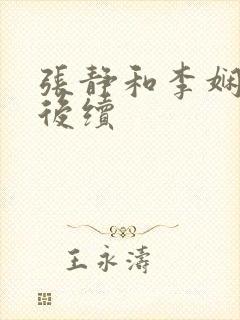 張靜和李娴
後續
王永濤